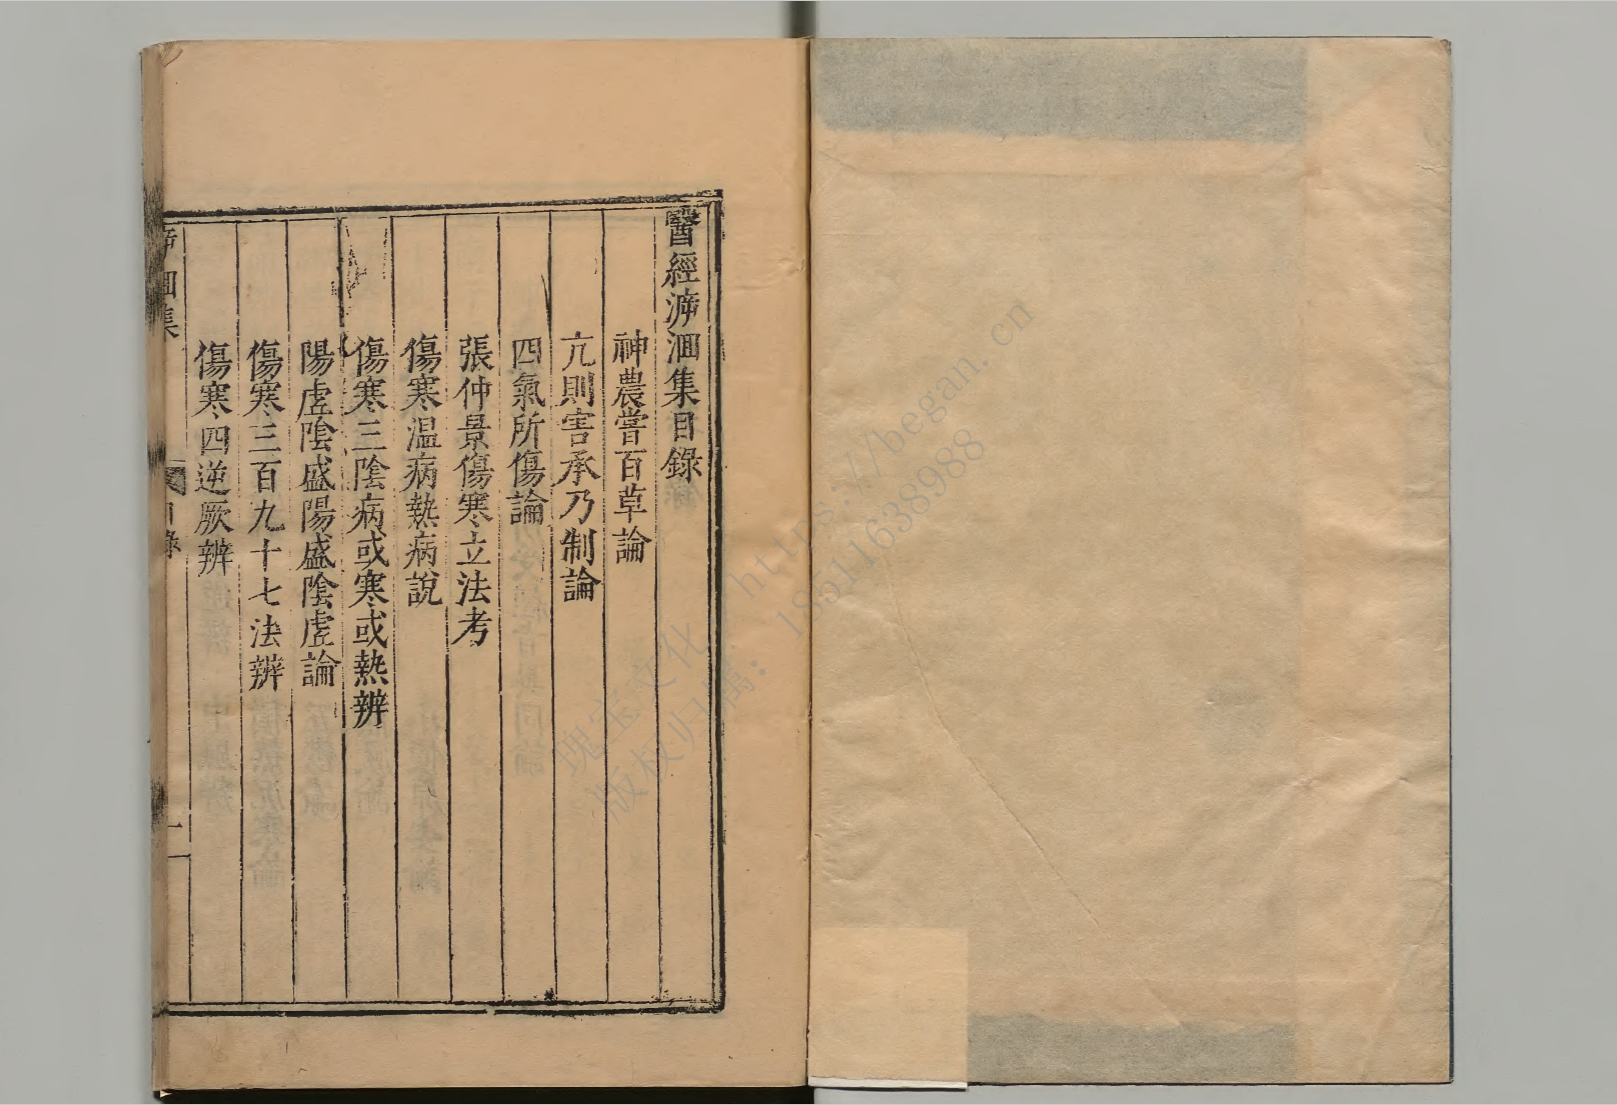 醫經㳺洄集目錄
神農嘗百草論
亢則害承乃制論
四氣所傷論
張仲景傷寒立法考
傷寒温病熱病說
傷寒三陰病或寒或熱辨
陽虛陰盛陽盛陰虛論
傷寒三百九十七法辨
傷寒四逆厥辨
洄集
目錄
一
瑰宝文化 https://began.cn
版权归属：18511638988